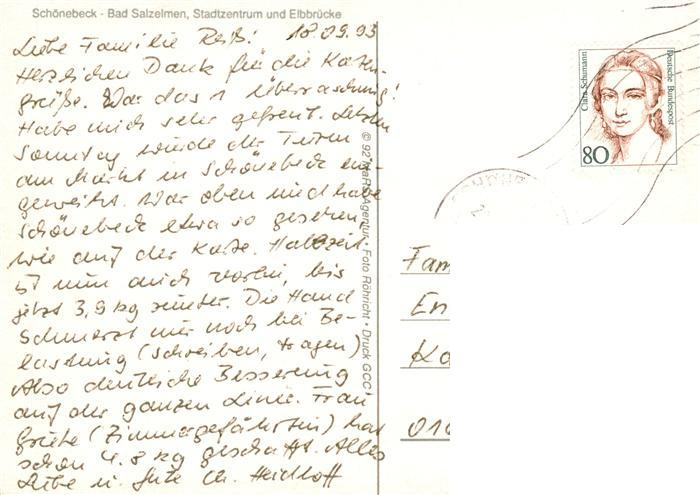 Schönebeck - Bad Salzelmen, Stadtzentrum und Elbbrücke
Liebe Familie Reiß! 18.09.93
Herzlichen Dank für die Karten-
grüße. War das 1 Überraschung!
Habe mich sehr gefreut. Letzten
Sonntag wurde der Turm
am Markt in Schönebeck ein-
geweiht. War oben und habe
Schönebeck etwa so gesehen,
wie auf der Karte. Halbzeit
ist nun auch vorbei, bis
jetzt 3,9 kg runter. Die Hand
schmerzt nur noch bei Be-
lastung (schreiben, tragen)
Also deutliche Besserung
auf der ganzen Linie. Frau
(Zimmergefährtin) hat
schon 4.8 kg geschafft. Alles
Liebe u. Gute
© 92 Agentur • Foto Röhricht • Druck GCC
Clara Schumann
Deutsche Bundespost
80
Fam
En
Ko
010